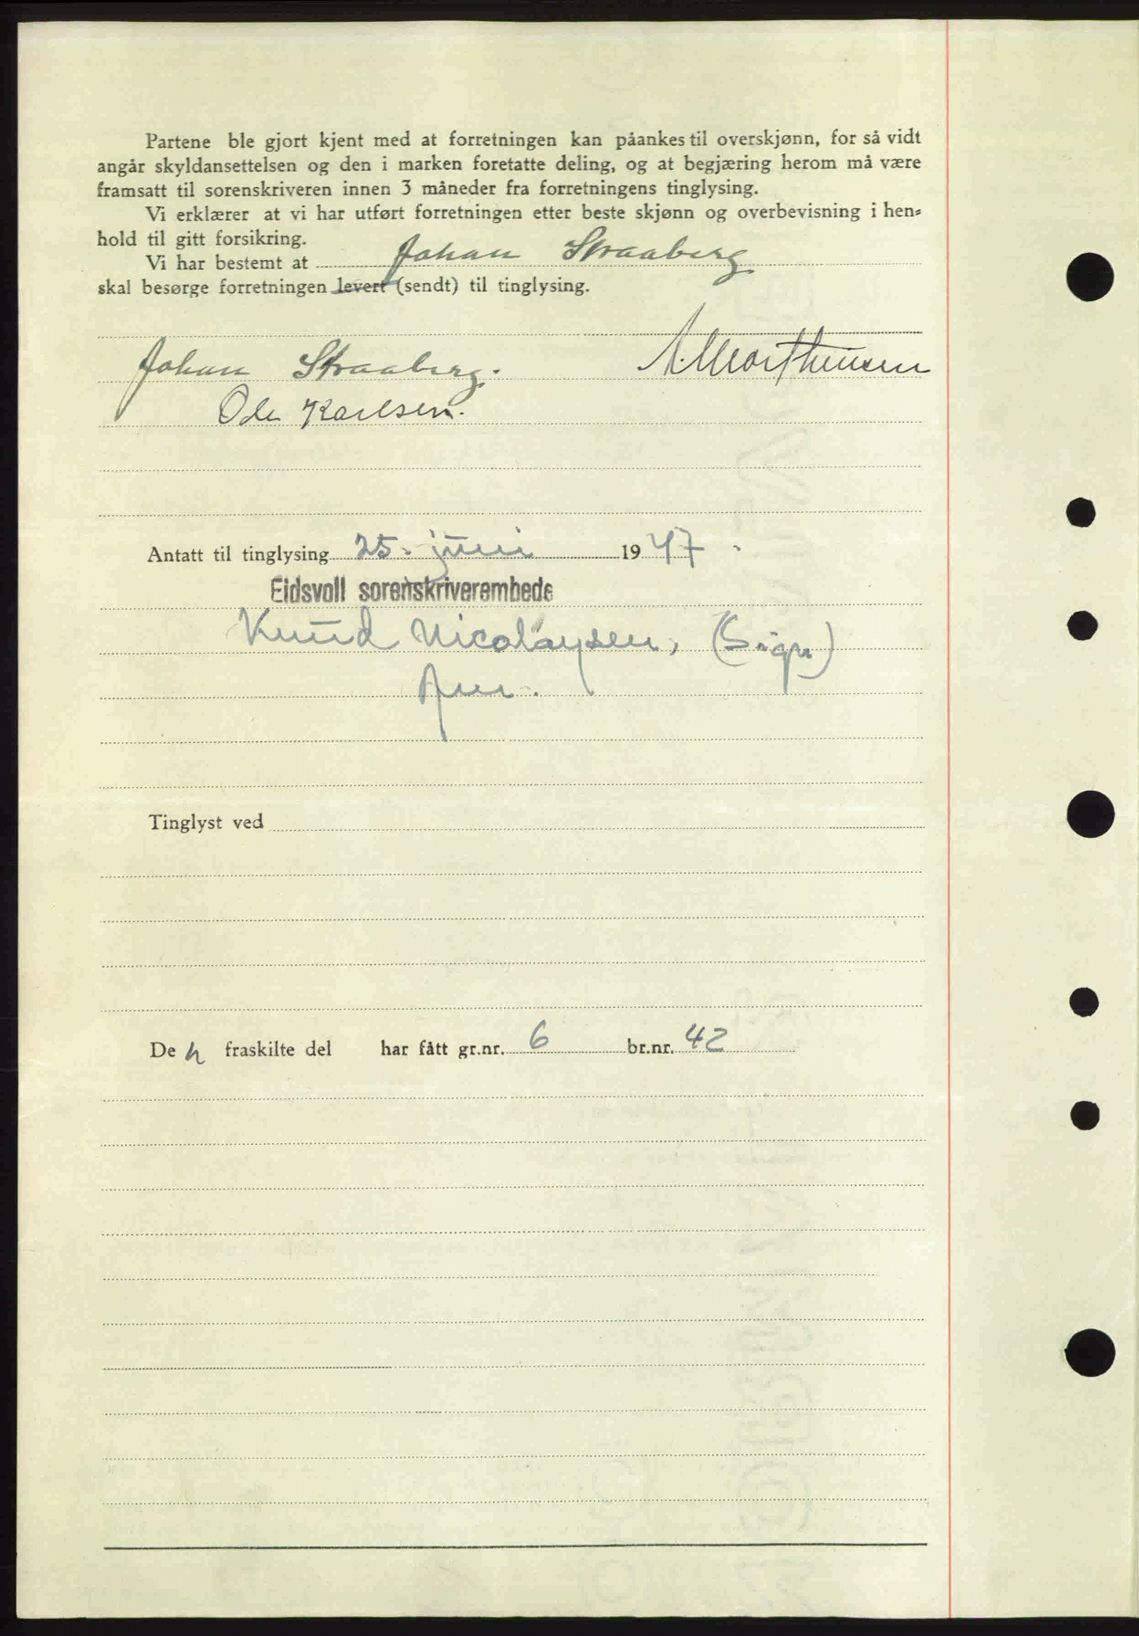 Partene ble gjort kjent med at forretningen kan påankes til overskjønn, for så vidt
angår skyldansettelsen og den i marken foretatte deling, og at begjæring herom må være
framsatt til sorenskriveren innen 3 måneder fra forretningens tinglysing.
Vi erklærer at vi har utført forretningen etter beste skjønn og overbevisning i hen-
hold til gitt forsikring.
Vi har bestemt at Johan Straaberg
skal besørge forretningen levert (sendt) til tinglysing.
Johan Straaberg. A. Morthinsen
Ole Karlsen.
Antatt til tinglysing 25. juni 1947.
Eidsvoll sorenskriverembede
Knud Nicolaysen, (Sign)
Tinglyst ved
De n fraskilte del har fått gr.nr. 6 br.nr. 42